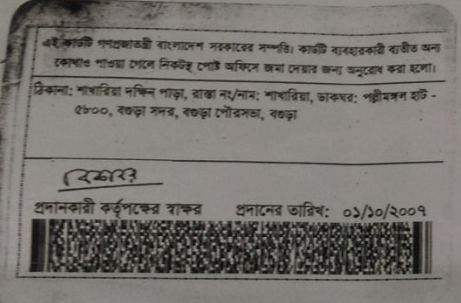 এই কার্ডটি গণপ্রজাতন্ত্রী বাংলাদেশ সরকারের সম্পত্তি। কার্ডটি ব্যবহারকারী ব্যতীত অন্য
কোথাও পাওয়া গেলে নিকটস্থ পোষ্ট অফিসে জমা দেয়ার জন্য অনুরোধ করা হলো।
ঠিকানা: শাখারিয়া দক্ষিন পাড়া, রাস্তা নং/নাম: শাখারিয়া, ডাকঘর: পল্লীমঙ্গল হাট -
৫৮০০, বগুড়া সদর, বগুড়া পৌরসভা, বগুড়া
প্রদানকারী কর্তৃপক্ষের স্বাক্ষর প্রদানের তারিখ: ০১/১০/২০০৭